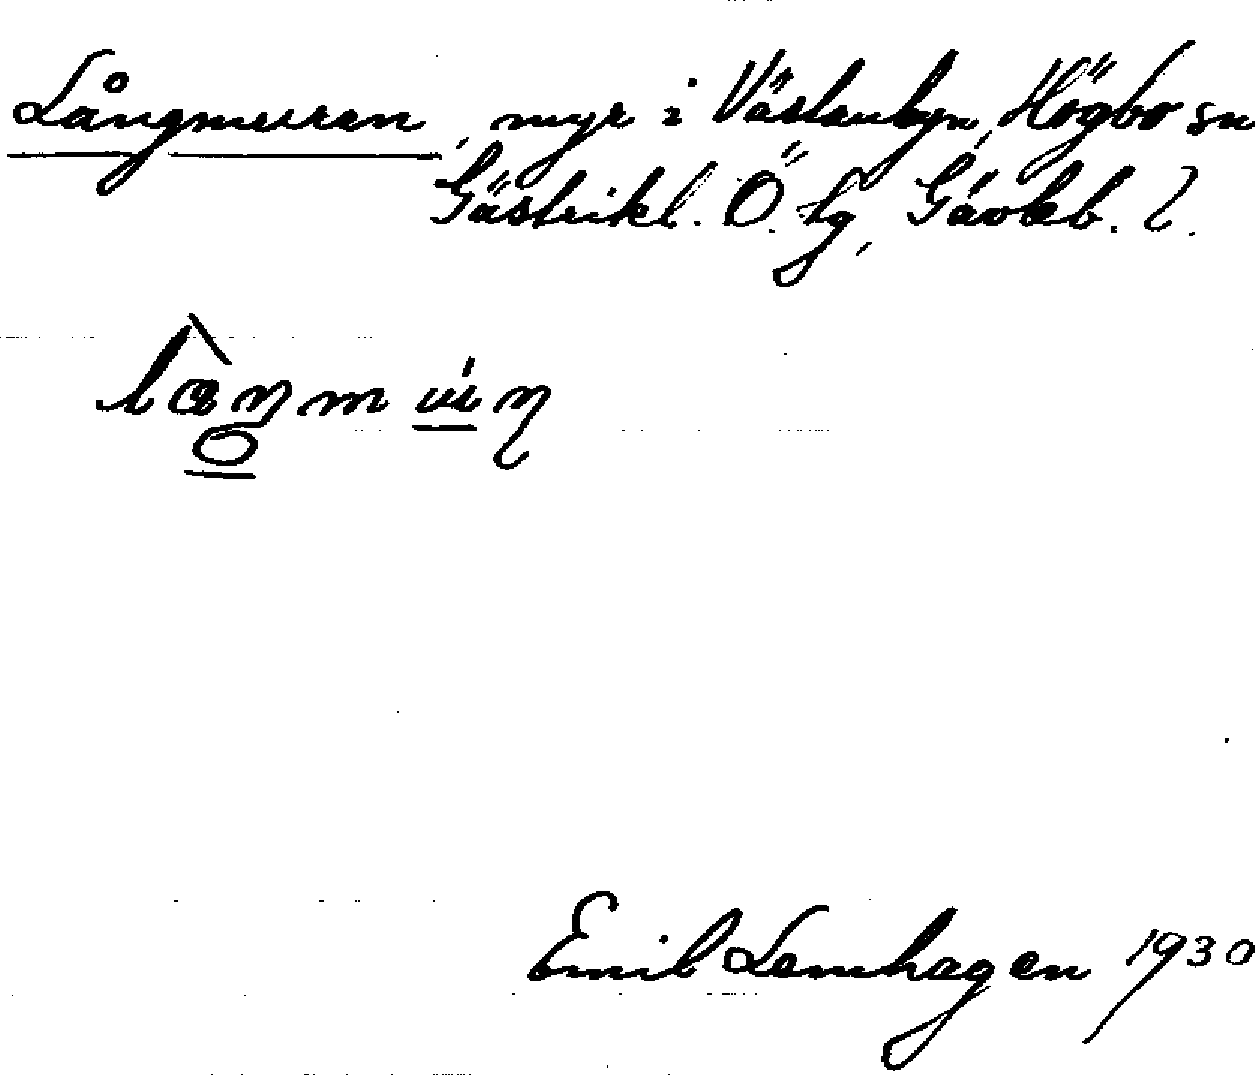 Långmuren, myr i Västanbyn, Högbo sn
Gästrikl. Ö. tg, Gävleb. l.
Emil Lemhagen 1930